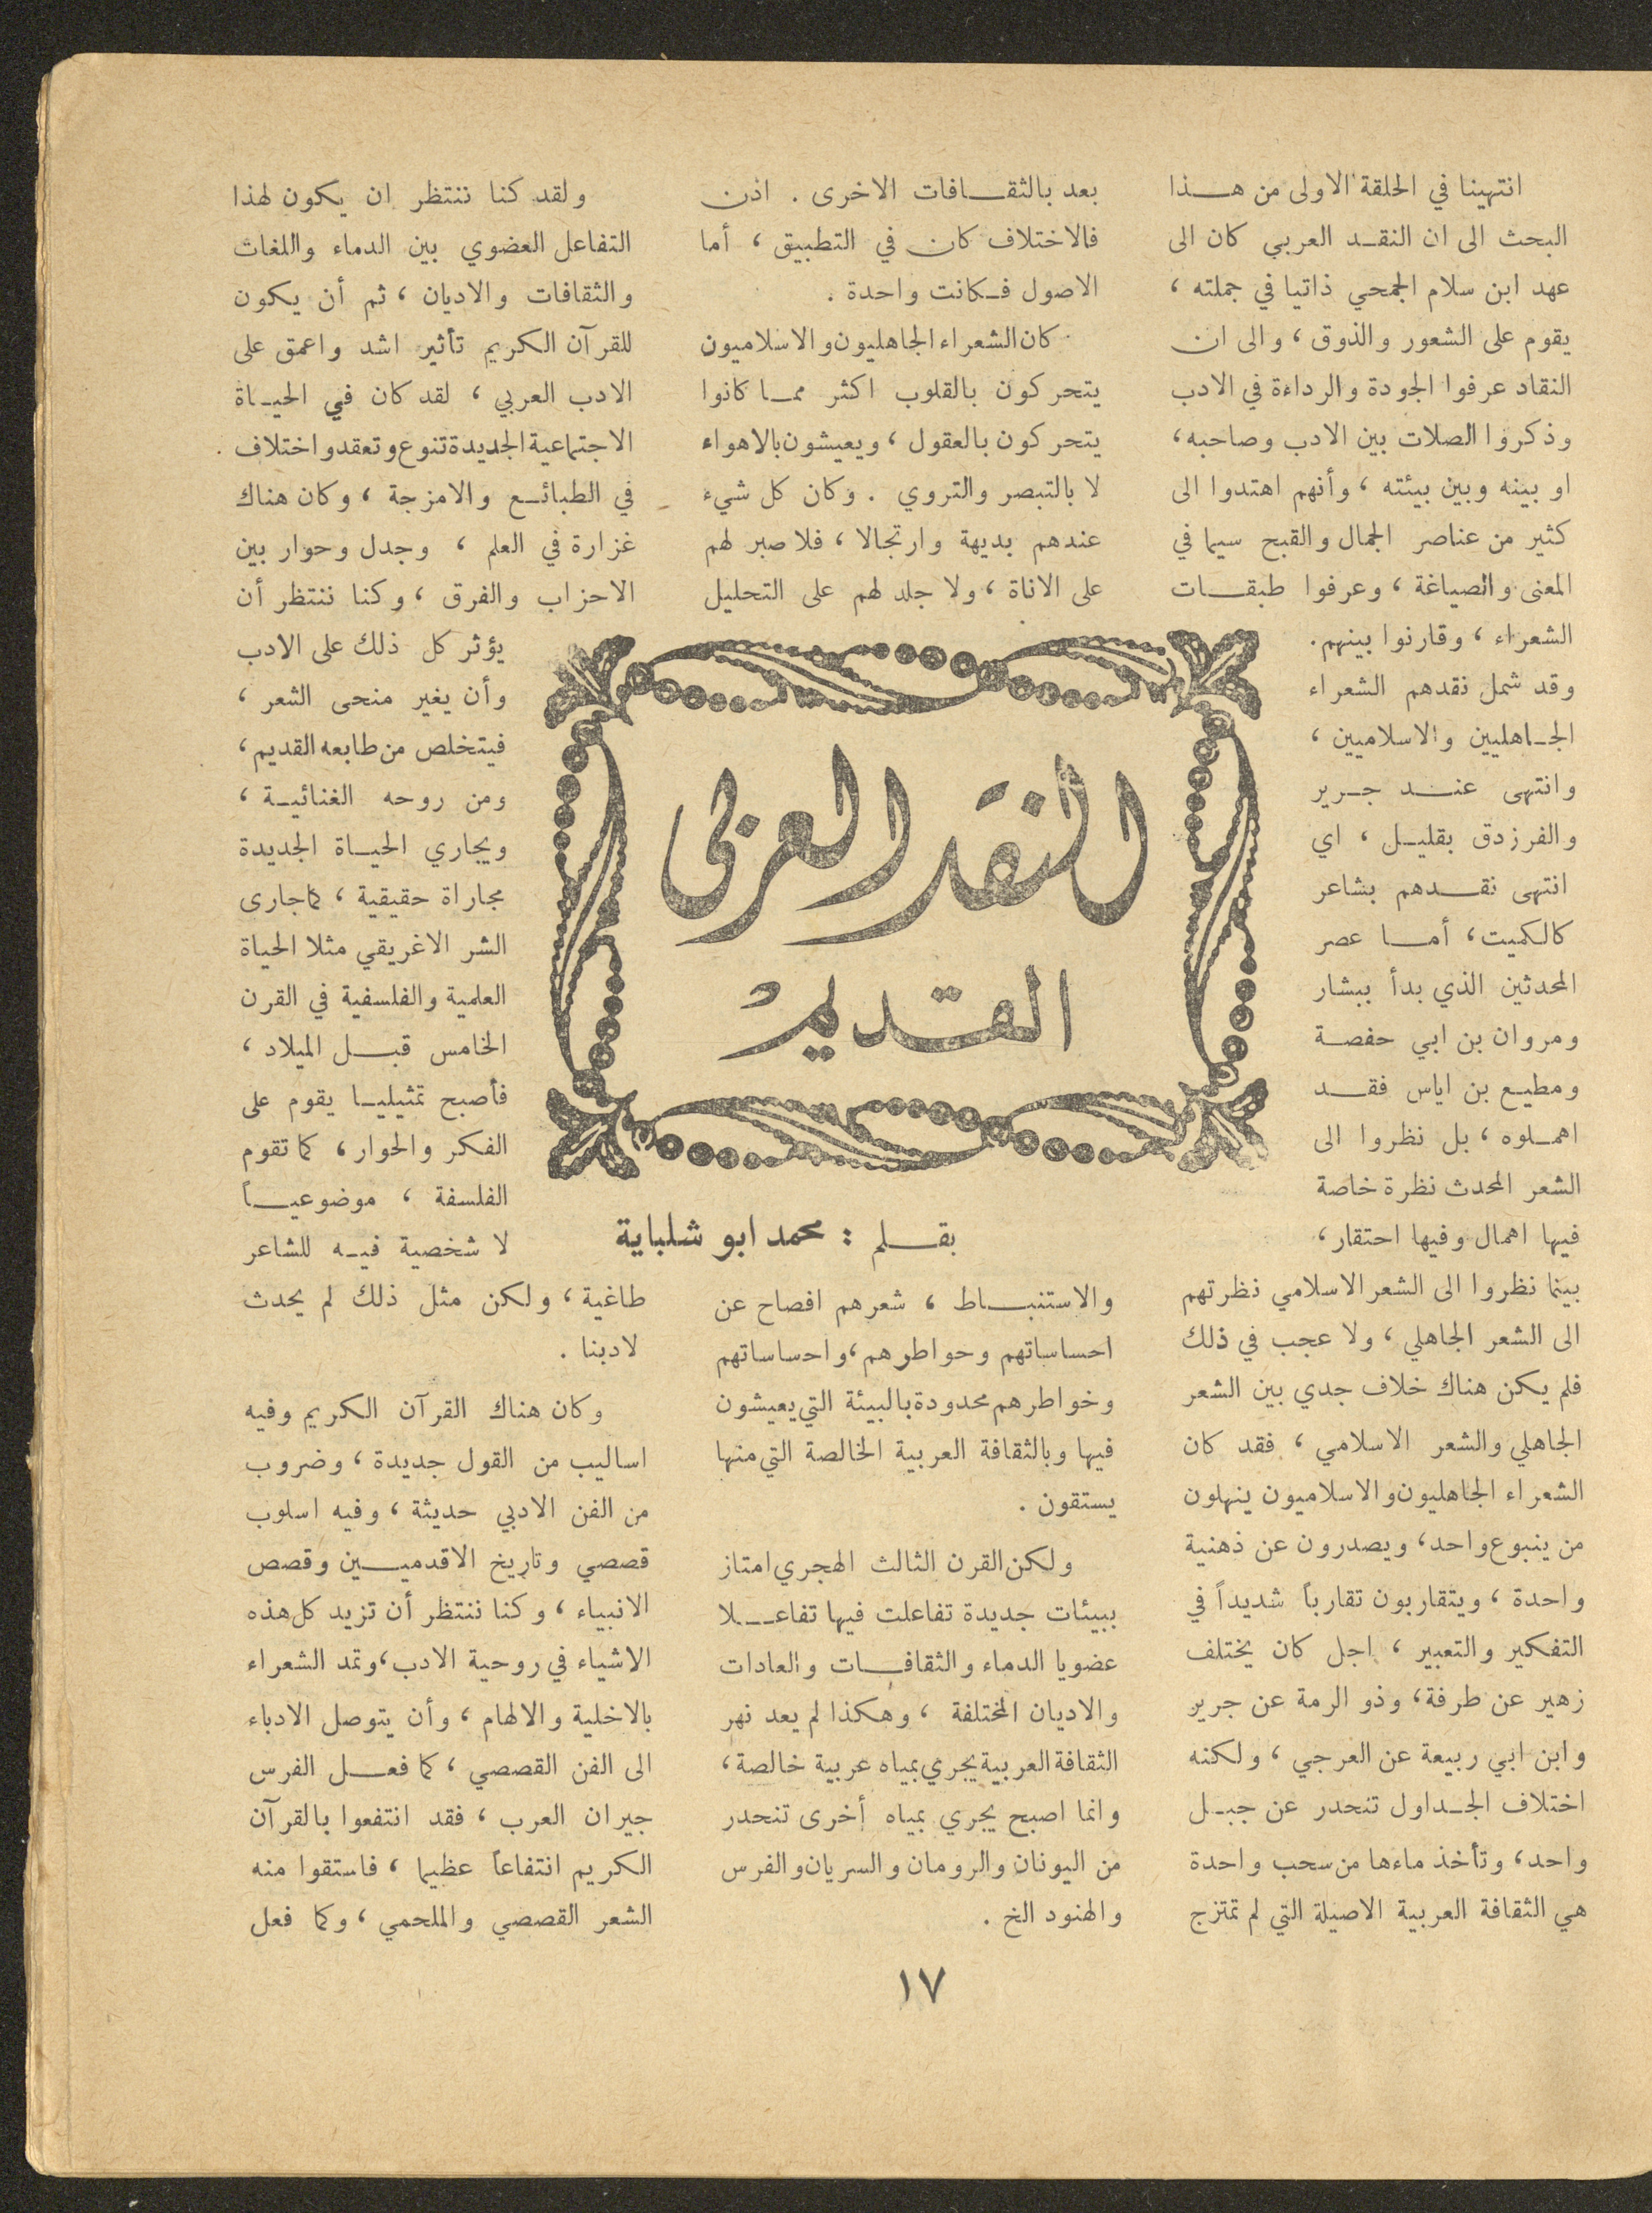 النقد العربي
القديم
بقلم : محمد ابو شلباية
انتهينا في الحلقة الاولى من هذا
البحث الى ان النقد العربي كان الى
عهد ابن سلام الجمحي ذاتيا في جملته ،
يقوم على الشعور والذوق ، والى ان
النقاد عرفوا الجودة والرداءة في الادب
وذكروا الصلات بين الادب وصاحبه ،
او بينه وبين بيئته ، وأنهم اهتدوا الى
كثير من عناصر الجمال والقبح سيما في
المعنى والصياغة ، وعرفوا طبقات
الشعراء ، وقارنوا بينهم .
وقد شمل نقدهم الشعراء
الجاهليين والاسلاميين ،
وانتهى عند جرير
والفرزدق بقليل ، اي
انتهى نقدهم بشاعر
كالكميت ، أما عصر
المحدثين الذي بدأ ببشار
ومروان بن ابي حفصة
ومطيع بن اياس فقد
اهملوه ، بل نظروا الى
الشعر المحدث نظرة خاصة
فيها اهمال وفيها احتقار ،
بينما نظروا الى الشعر الاسلامي نظرتهم
الى الشعر الجاهلي ، ولا عجب في ذلك
فلم يكن هناك خلاف جدي بين الشعر
الجاهلي والشعر الاسلامي ، فقد كان
الشعراء الجاهليون والاسلاميون ينهلون
من ينبوع واحد ، ويصدرون عن ذهنية
واحدة ، ويتقاربون تقارباً شديداً في
التفكير والتعبير ، اجل كان يختلف
زهير عن طرفة ، وذو الرمة عن جرير
وابن ابي ربيعة عن العرجي ، ولكنه
اختلاف الجداول تنحدر عن جبل
واحد ، وتأخذ ماءها من سحب واحدة
هي الثقافة العربية الاصيلة التي لم تمتزج
بعد بالثقافات الاخرى . اذن
فالاختلاف كان في التطبيق ، أما
الاصول فكانت واحدة .
كان الشعراء الجاهليون والاسلاميون
يتحركون بالقلوب اكثر مما كانوا
يتحركون بالعقول ، ويعيشون بالاهواء
لا بالتبصر والتروي . وكان كل شيء
عندهم بديهة وارتجالا ، فلا صبر لهم
على الاناة ، ولا جلد لهم على التحليل
والاستنباط ، شعرهم افصاح عن
احساساتهم وحواطرهم ، واحساساتهم
وخواطرهم محدودة بالبيئة التي يعيشون
فيها وبالثقافة العربية الخالصة التي منها
يستقون .
ولكن القرن الثالث الهجري امتاز
ببيئات جديدة تفاعلت فيها تفاعلا
عضويا الدماء والثقافات والعادات
والاديان المختلفة ، وهكذا لم يعد نهر
الثقافة العربية يجري بمياه عربية خالصة ،
وانما اصبح يجري بمياه أخرى تنحدر
من اليونان والرومان والسريان والفرس
والهنود الخ .
ولقد كنا ننتظر ان يكون لهذا
التفاعل العضوي بين الدماء واللغات
والثقافات والاديان ، ثم أن يكون
للقرآن الكريم تأثير اشد واعمق على
الادب العربي ، لقد كان في الحياة
الاجتماعية الجديدة تنوع وتعقد واختلاف
في الطبائع والامزجة ، وكان هناك
غزارة في العلم ، وجدل وحوار بين
الاحزاب والفرق ، وكنا ننتظر أن
يؤثر كل ذلك على الادب
وأن يغير منحى الشعر ،
فيتخلص من طابعه القديم ،
ومن روحه الغنائية ،
ويجاري الحياة الجديدة
مجاراة حقيقية ، كما جارى
الشر الاغريقي مثلا الحياة
العلمية والفلسفية في القرن
الخامس قبل الميلاد ،
فأصبح تمثيليا يقوم على
الفكر والحوار ، كما تقوم
الفلسفة ، موضوعياً
لا شخصية فيه للشاعر
طاغية ، ولكن مثل ذلك لم يحدث
لادبنا .
وكان هناك القرآن الكريم وفيه
اساليب من القول جديدة ، وضروب
من الفن الادبي حديثة ، وفيه اسلوب
قصصي وتاريخ الاقدمين وقصص
الانبياء ، وكنا ننتظر أن تزيد كل هذه
الاشياء في روحية الادب ، وتمد الشعراء
بالاخلية والالهام ، وأن يتوصل الادباء
الى الفن القصصي ، كما فعل الفرس
جيران العرب ، فقد انتفعوا بالقرآن
الكريم انتفاعاً عظيما ، فاستقوا منه
الشعر القصصي والملحمي ، وكما فعل
١٧